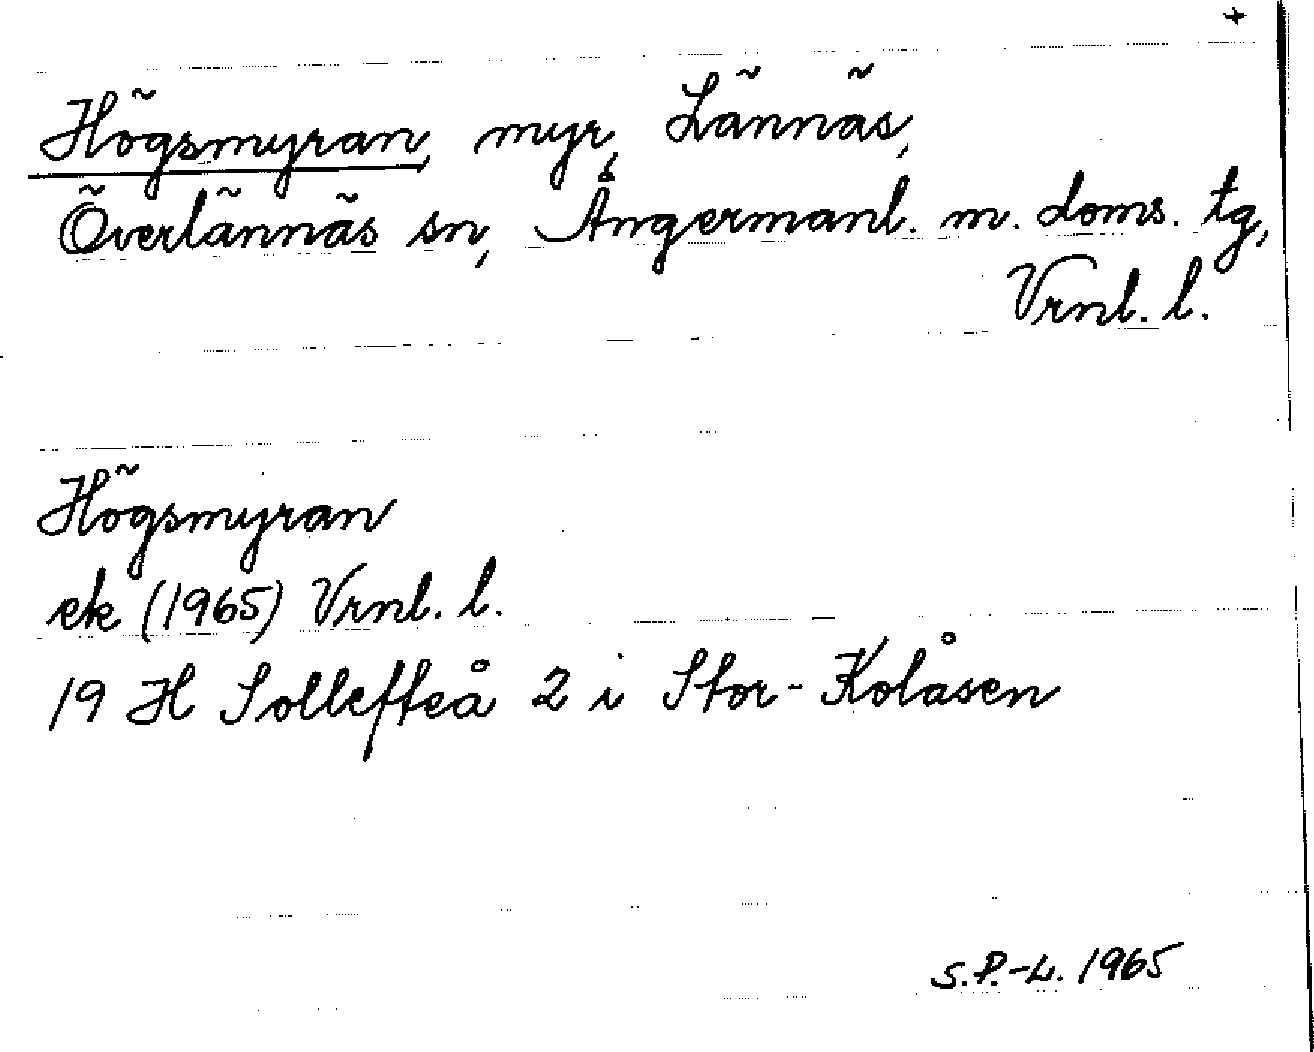 +
Högsmyran, myr, Lännäs,
Överlännäs sn, Ångermanl. m. doms. tg,
Vrnl. l.
Högsmyran
ek (1965) Vrnl. l.
19 H Sollefteå 2 i Stor-Kolåsen
S.P.-L. 1965